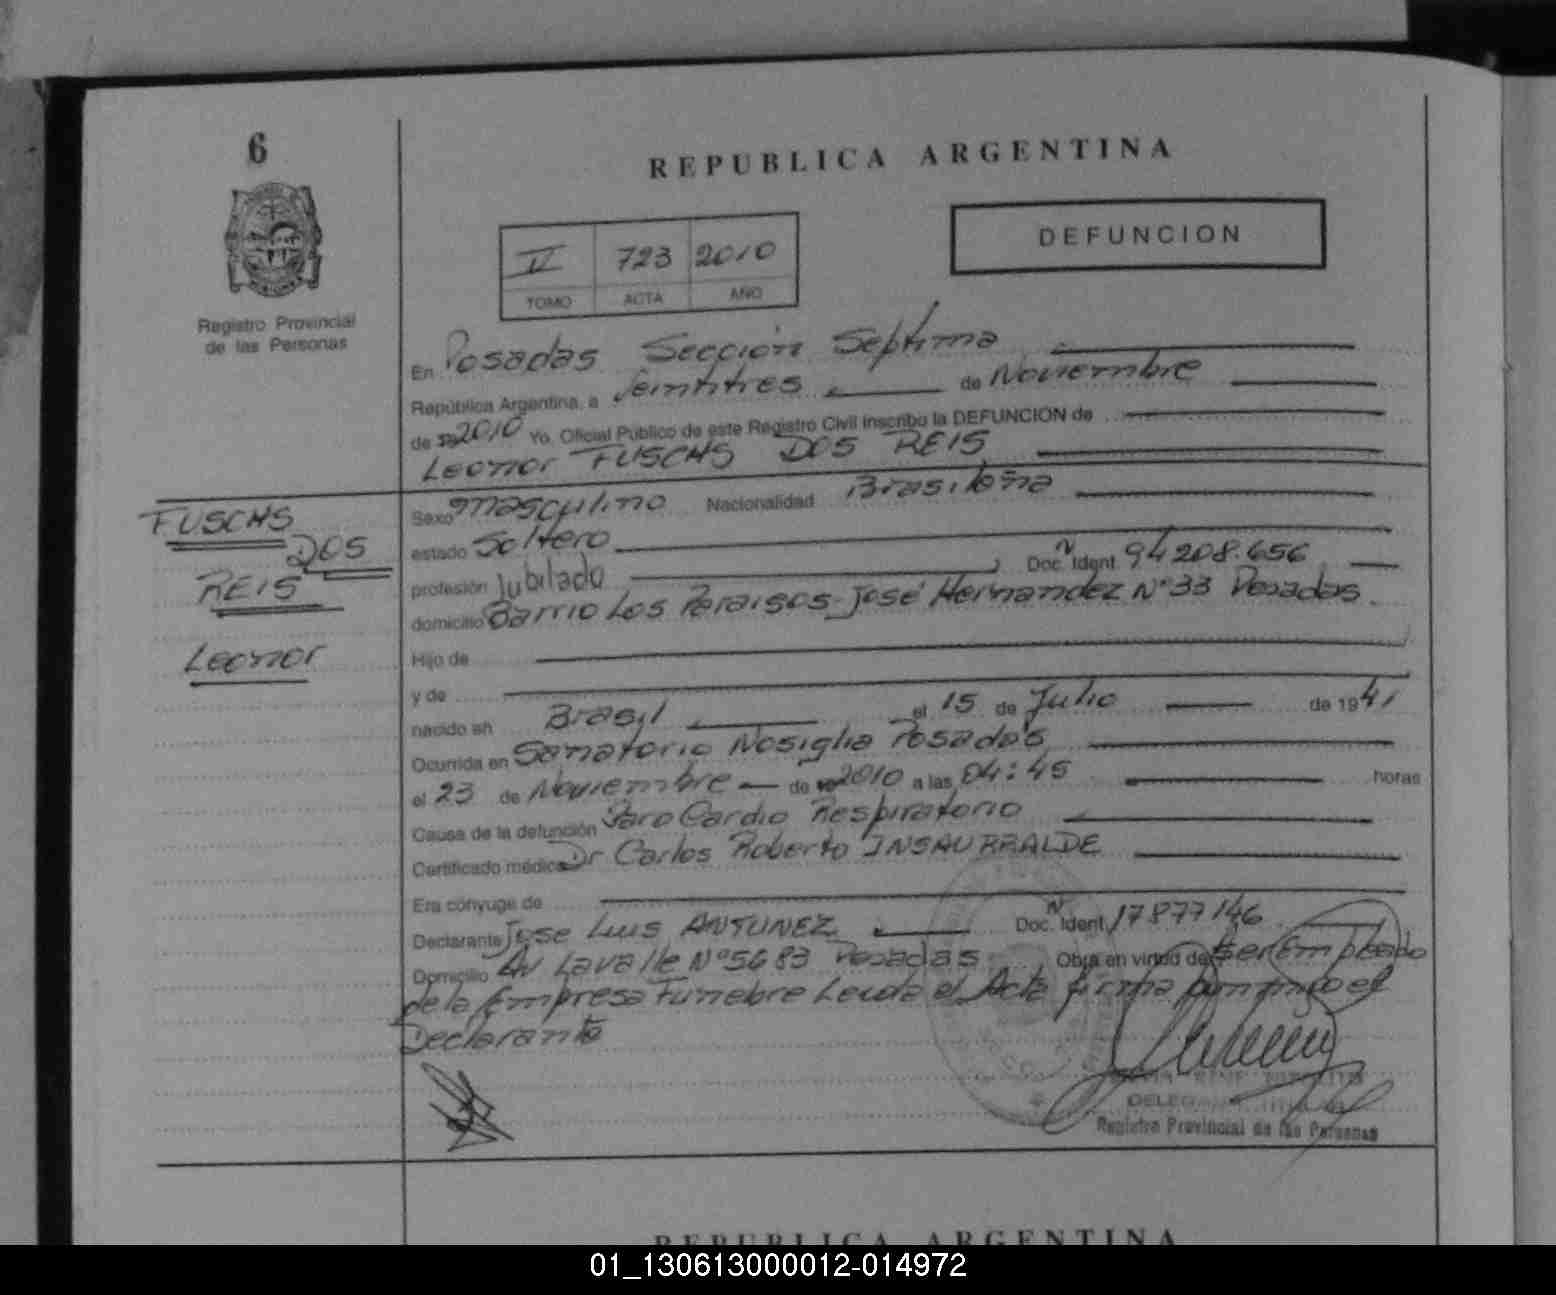 6
REPUBLICA ARGENTINA
Registro Provincial
de las Personas
II 723 2010
TOMO ACTA AÑO
DEFUNCION
En Posadas Sección Septima
República Argentina, a Veintitres de Noviembre
de 2010 Yo. Oficial Público de este Registro Civil inscribo la DEFUNCION de
Leonor FUSCHS DOS REIS
FUSCHS
DOS
REIS
Leonor
Sexo masculino Nacionalidad Brasileña
estado Soltero
profesión Jubilado Doc. Ident. Nº 94208.656
domicilio Barrio Los Paraisos-José Hernandez Nº33 Posadas.
Hijo de
y de
nacido en Brasil el 15 de Julio de 1941
Ocurrida en Sanatorio Nosiglia Posadas
el 23 de Noviembre de 2010 a las 04:45 horas
Causa de la defunción Paro Cardio Respiratorio
Certificado médico Dr Carlos Roberto INSAURRALDE
Era cónyuge de
Declarante Jose Luis ANTUNEZ Doc. Ident. Nº 17877146
Domicilio Av Lavalle Nº5683 Posadas Obra en virtud de Ser Empleado
de la Empresa Funebre Leida el Acta firma conmigo el
Declarante
Registro Provincial de las Personas
REPUBLICA ARGENTINA
01_130613000012-014972